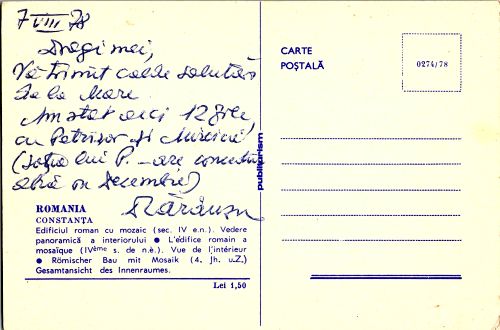 7 VIII 78
Dragii mei,
Vă trimit calde salutări
de la Mare.
Am stat aici 12 zile,
cu Petrișor și Mircică
(soția lui P. – are concediu
abia în Decembrie)
ROMANIA
CONSTANȚA
Edificiul roman cu mozaic (sec. IV e.n.). Vedere
panoramică a interiorului ● L'édifice romain a
mosaïque (IVème s. de n.è.). Vue de l'intérieur
● Römischer Bau mit Mosaik (4. Jh. u.Z.)
Gesamtansicht des Innenraumes.
Lei 1,50
publiturism
CARTE
POȘTALĂ
0274/78